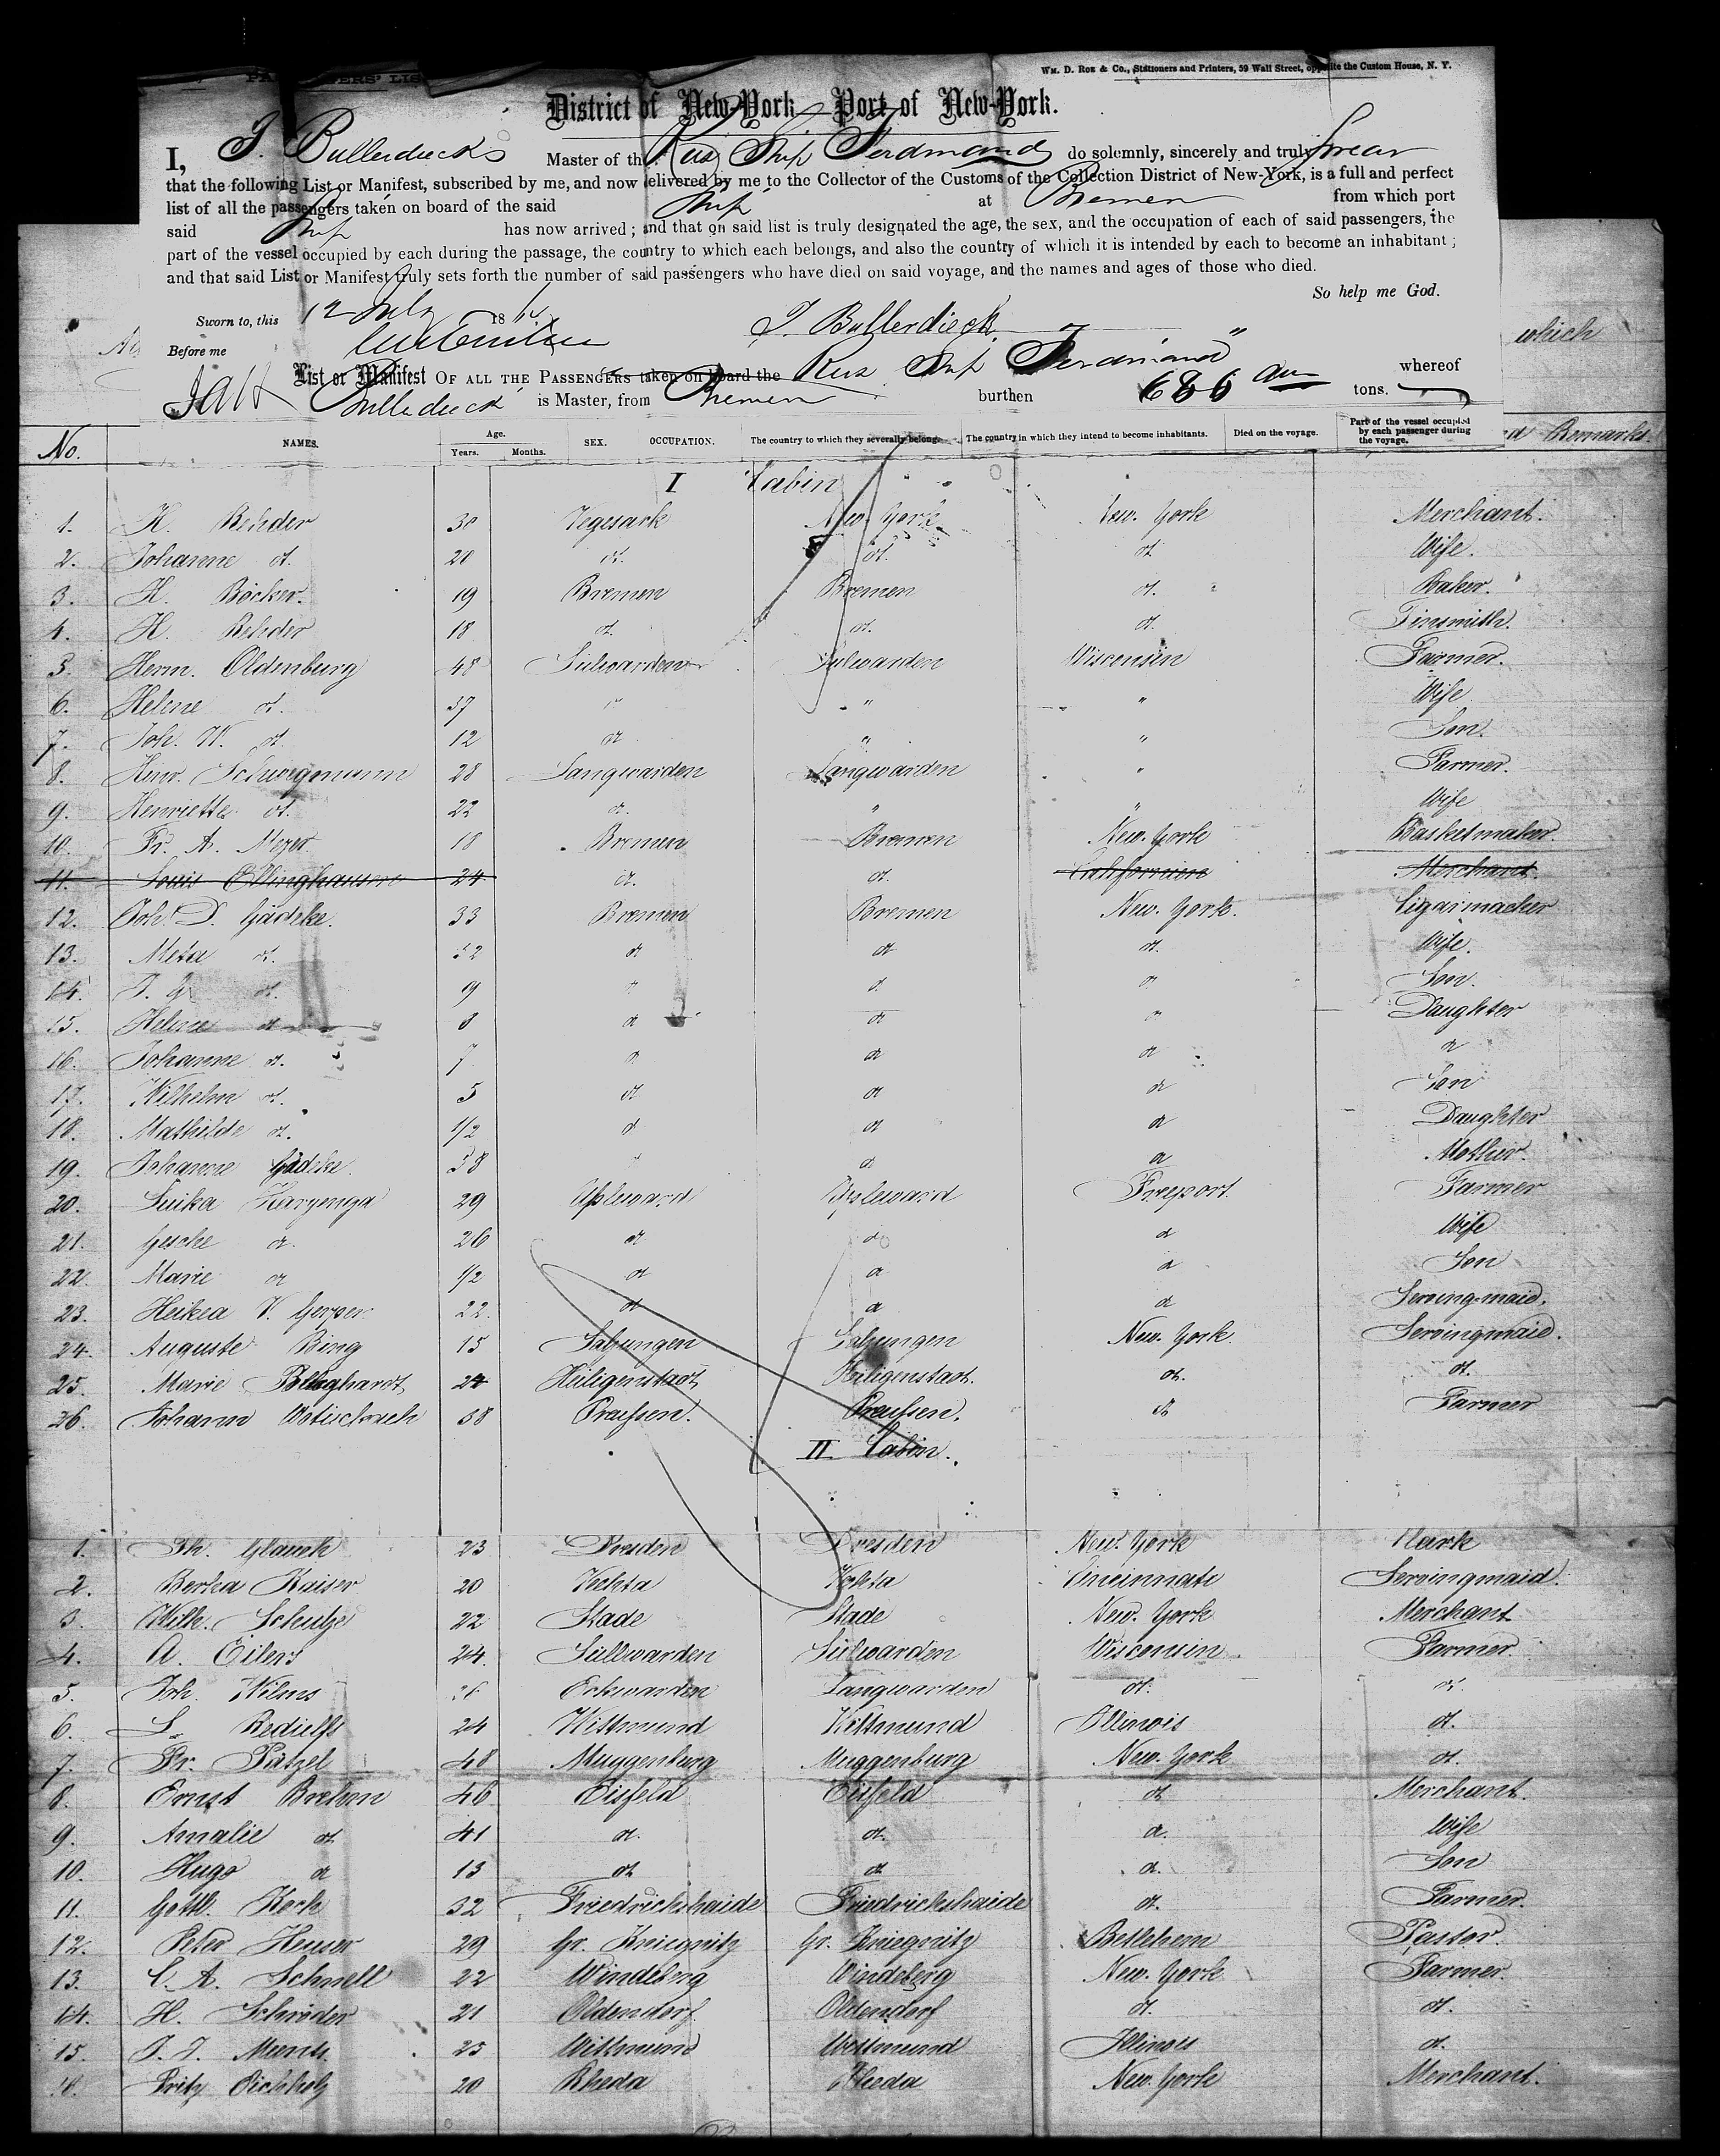 PASSENGERS' LIS
WM. D. ROE & Co., Stationers and Printers, 59 Wall Street, opposite the Custom House, N. Y.
District of New-York Port of New-York.
I, J. Bullerdieck Master of the Rus Ship Ferdinand do solemnly, sincerely and truly swear
that the following List or Manifest, subscribed by me, and now delivered by me to the Collector of the Customs of the Collection District of New-York, is a full and perfect
list of all the passengers taken on board of the said Ship at Bremen from which port
said Ship has now arrived; and that on said list is truly designated the age, the sex, and the occupation of each of said passengers, the
part of the vessel occupied by each during the passage, the country to which each belongs, and also the country of which it is intended by each to become an inhabitant;
and that said List or Manifest truly sets forth the number of said passengers who have died on said voyage, and the names and ages of those who died.
So help me God.
Sworn to, this 12 July 18
J. Bullerdieck
which
Before me
List or Manifest OF ALL THE PASSENGERS taken on board the Rus Ship Ferdinand whereof
Bullerdieck is Master, from Bremen burthen 686 tons.
No. NAMES. Age. Years. Months. SEX. OCCUPATION. The country to which they severally belong. The country in which they intend to become inhabitants. Died on the voyage. Part of the vessel occupied by each passenger during the voyage. Remarks
I Cabin
1. H. Rehder 30 Vegesack New York New York Merchant.
2. Johanne dt. 20 dt. dt. dt. Wife.
3. H. Böcker. 19 Bremen Bremen dt. Baker.
4. H. Rehder 18 dt. dt. dt. Tinsmith.
5. Herm. Oldenburg 48 Sülwarden Sülwarden Wisconsin Farmer.
6. Helene dt. 37 " " " Wife
7. Joh. W. dt. 12 dt " " Son.
8. Heinr. Schwegmann 28 Langwarden Langwarden " Farmer.
9. Henriette dt. 22 dt. " " Wife
10. Fr. A. Meyer 18 Bremen Bremen New York Basketmaker.
11. Louis Ellinghausen 24 dt. dt. Californien Merchant.
12. Joh. D. Gädeke. 33 Bremen Bremen New York. Cigarmacker
13. Meta dt. 32 dt dt dt. Wife.
14. J. G. dt. 9 " d. " Son.
15. Helene dt 8 dt dt " Daughter
16. Johanne dt. 7 dt dt dt dt
17. Wilhelm dt. 5 dt dt dt Son
18. Mathilde dt. 1/2 dt dt dt Daughter
19. Johanne Gädeke. 58 " dt dt Mother.
20. Luika 29 Upleward Upleward Freeport. Farmer
21. Gesche dt. 26 dt dt dt Wife
22. Marie dt 1/2 dt dt dt Son
23. Heikea V. 22. dt dt dt Servingmaid.
24. Auguste Bing 15 Salzungen Salzungen New York. Servingmaid.
25. Marie Burghardt 24 Heiligenstadt Heiligenstadt. dt. dt.
26. Johann 38 Preussen. Preussen. dt Farmer
II Cabin.
1. Th. Glauch 23 Dresden Dresden New York Clark
2. Bertha Kaiser 20 Vechta Vechta Cincinnati Servingmaid.
3. Wilh. Schulze 22 Stade Stade New York Merchant.
4. A. Eilers 24. Süllwarden Sülwarden Wisconsin Farmer.
5. Joh. Wilms Eckwarden Langwarden dt. dt.
6. 24 Wittmund Wittmund Illinois dt.
7. Fr. Pätzel 48 Muggenburg Muggenburg New York dt.
8. Ernst Brehm 46 Eisfeld Eisfeld dt Merchant.
9. Amalie dt. 41 dt. dt. dt. Wife
10. Hugo dt 13 dt dt dt. Son
11. Gottl. Koch 32 Friedrichshaide Friedrichshaide dt. Farmer.
12. Peter Heuser 29 Gr. Kriegnitz Gr. Kriegnitz Betlehem Pastor.
13. C. A. Schnell 22 Windeberg Windeberg New York Farmer.
14. H. Schröder 21 Oldendorf Oldendorf dt. dt.
15. J. J. 25 Wittmund Wittmund Illinois dt.
16. Fritz Eichholz 20 Rheda Rheda New York Merchant.